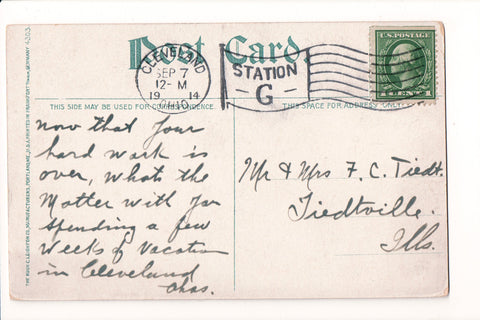 Post Card.
CLEVELAND
SEP 7
12-M
19 14
OHIO
STATION
G
U.S. POSTAGE
1 CENT 1
THIS SIDE MAY BE USED FOR CORRESPONDENCE.
THIS SPACE FOR ADDRESS ONLY.
now that your
hard work is
over, whats the
Matter with you
spending a few
weeks of vacation
in Cleveland
Chas.
Mr & Mrs F. C. Tiedt.
Tiedtville.
Ills.
THE HUGH C. LEIGHTON CO., MANUFACTURERS, PORTLAND, ME., U.S.A.